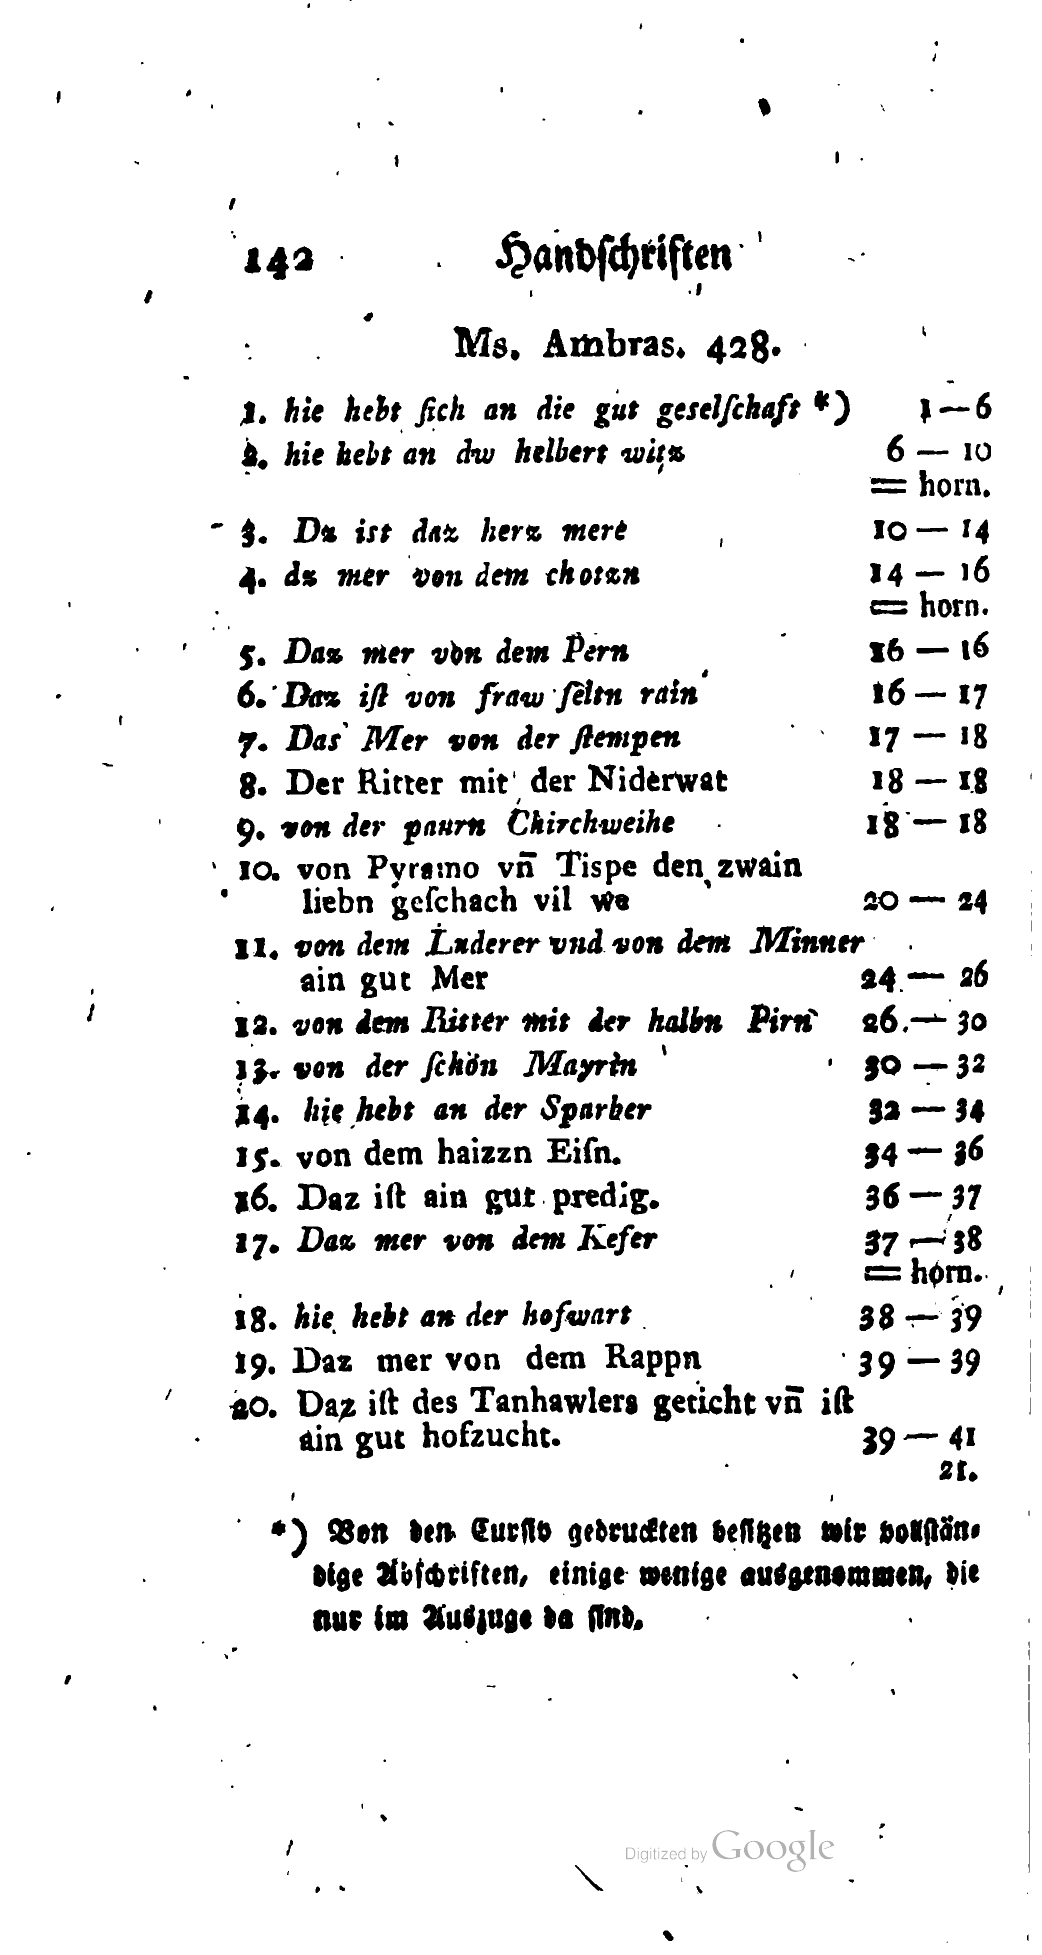 142 Handſchriften
Ms. Ambras. 428.
1. hie hebt ſich an die gut geselſchaft *) 1—6
2. hie hebt an dw helbert witz 6 — 10
= horn.
3. Dz ist daz herz mere 10 — 14
4. dz mer von dem chotzn 14 — 16
= horn.
5. Daz mer von dem Pern 16 — 16
6. Daz iſt von fraw ſeltn rain 16 — 17
7. Das Mer von der ſtempen 17 — 18
8. Der Ritter mit der Niderwat 18 — 18
9. von der paurn Chirchweihe 18 — 18
10. von Pyramo vn̄ Tispe den zwain
liebn geſchach vil we 20 — 24
11. von dem Luderer vnd von dem Minner
ain gut Mer 24 — 26
12. von dem Ritter mit der halbn Pirn 26 — 30
13. von der ſchön Mayrin 30 — 32
14. hie hebt an der Sparber 32 — 34
15. von dem haizzn Eiſn. 34 — 36
16. Daz iſt ain gut predig. 36 — 37
17. Daz mer von dem Kefer 37 — 38
= horn.
18. hie hebt an der hofwart 38 — 39
19. Daz mer von dem Rappn 39 — 39
20. Daz iſt des Tanhawlers geticht vn̄ iſt
ain gut hofzucht. 39 — 41
21.
*) Von den Curſiv gedruckten beſitzen wir vollſtän-
dige Abſchriften, einige wenige ausgenommen, die
nur im Auszuge da ſind.
Digitized by Google